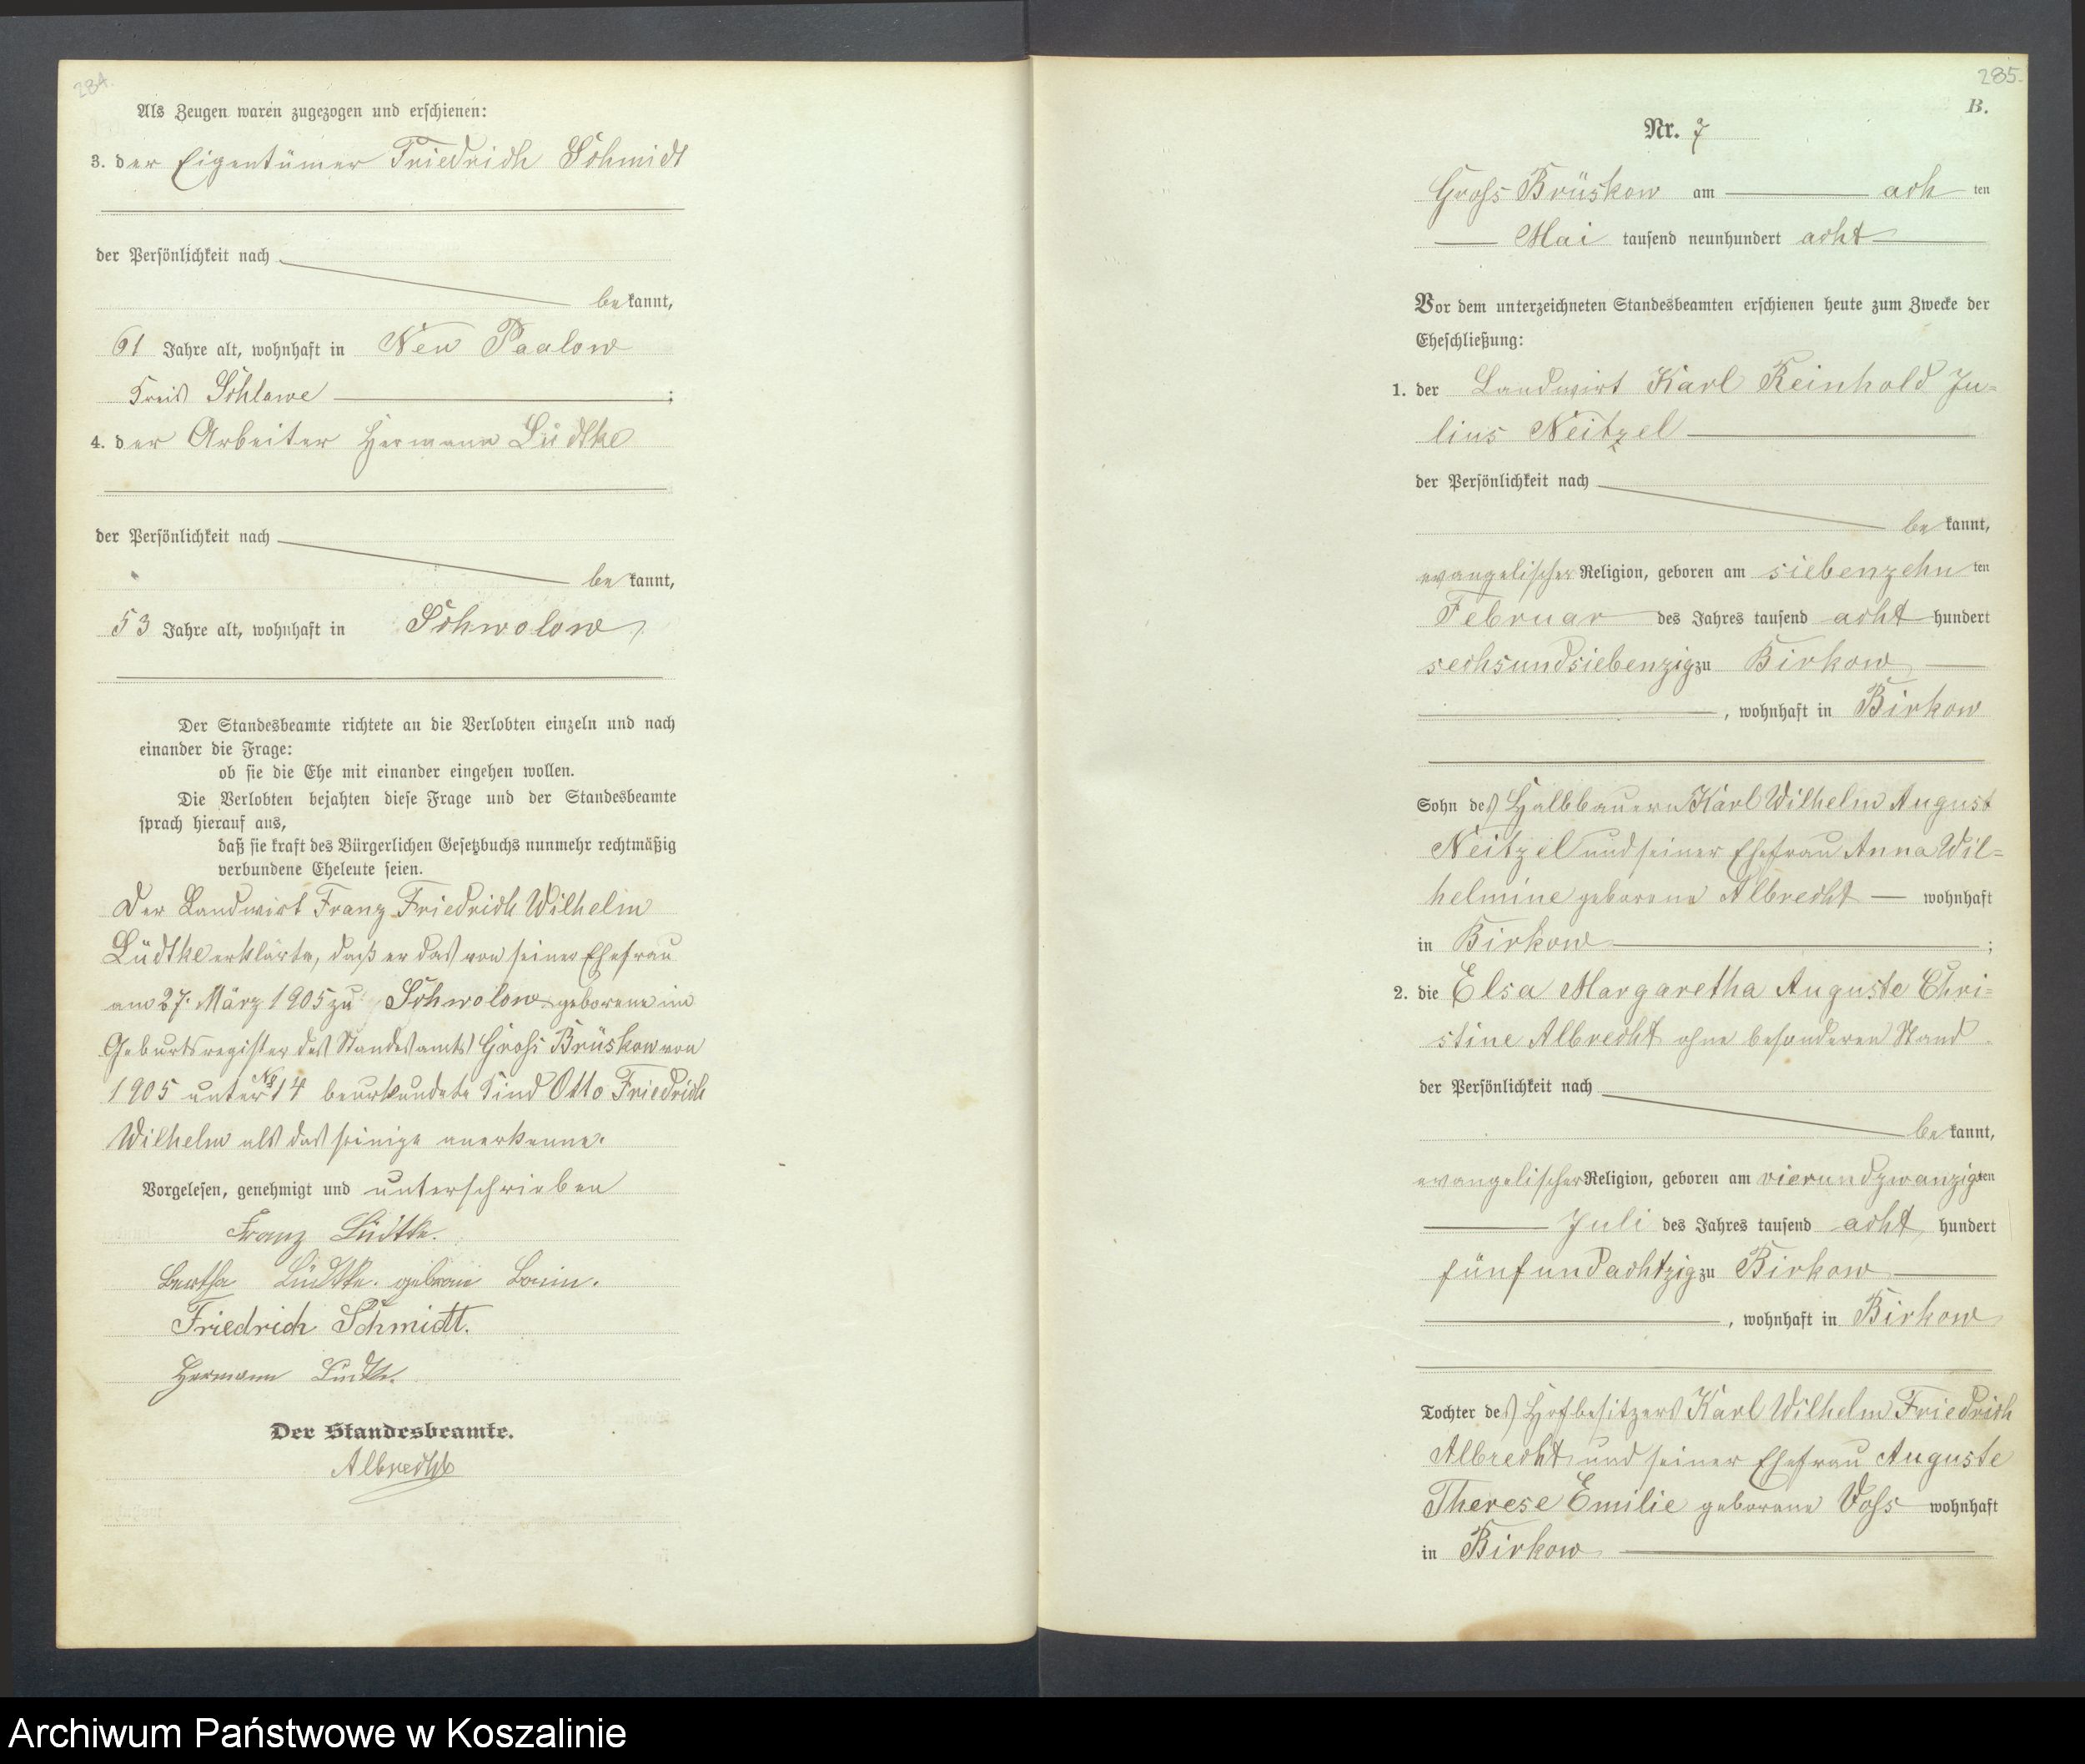 284.
Als Zeugen waren zugezogen und erschienen:
3. der Eigentümer Friedrich Schmidt
der Persönlichkeit nach
bekannt,
61 Jahre alt, wohnhaft in Neu Paalow
Kreis Schlawe ;
4. der Arbeiter Hermann Lüdtke
der Persönlichkeit nach
bekannt,
53 Jahre alt, wohnhaft in Schwolow
Der Standesbeamte richtete an die Verlobten einzeln und nach
einander die Frage:
ob sie die Ehe mit einander eingehen wollen.
Die Verlobten bejahten diese Frage und der Standesbeamte
sprach hierauf aus,
daß sie kraft des Bürgerlichen Gesetzbuchs nunmehr rechtmäßig
verbundene Eheleute seien.
Der Landwirt Franz Friedrich Wilhelm
Lüdtke erklärte, daß er das von seiner Ehefrau
am 27. März 1905 zu Schwolow geborene im
Geburtsregister des Standesamts Gross Brüskow von
1905 unter No 14 beurkundete Kind Otto Friedrich
Wilhelm als das seinige anerkenne.
Vorgelesen, genehmigt und unterschrieben
Franz Lüdtke.
Bertha Lüdtke. geboren
Friedrich Schmidt.
Hermann Lüdtke.
Der Standesbeamte.
Albrecht
285.
B.
Nr. 7
Gross Brüskow am achten
Mai tausend neunhundert acht
Vor dem unterzeichneten Standesbeamten erschienen heute zum Zwecke der
Eheschließung:
1. der Landwirt Karl Reinhold Ju=
lius Neitzel
der Persönlichkeit nach
bekannt,
evangelischer Religion, geboren am siebenzehnten
Februar des Jahres tausend acht hundert
sechsundsiebenzig zu Birkow
, wohnhaft in Birkow
Sohn des Halbbauern Karl Wilhelm August
Neitzel und seiner Ehefrau Anna Wil=
helmine geborene Albrecht wohnhaft
in Birkow ;
2. die Elsa Margaretha Auguste Chri=
stine Albrecht ohne besonderen Stand
der Persönlichkeit nach
bekannt,
evangelischer Religion, geboren am vierundzwanzigsten
Juli des Jahres tausend acht hundert
fünfundachtzig zu Birkow
, wohnhaft in Birkow
Tochter des Hofbesitzers Karl Wilhelm Friedrich
Albrecht und seiner Ehefrau Auguste
Therese Emilie geborene Voss wohnhaft
in Birkow
Archiwum Państwowe w Koszalinie